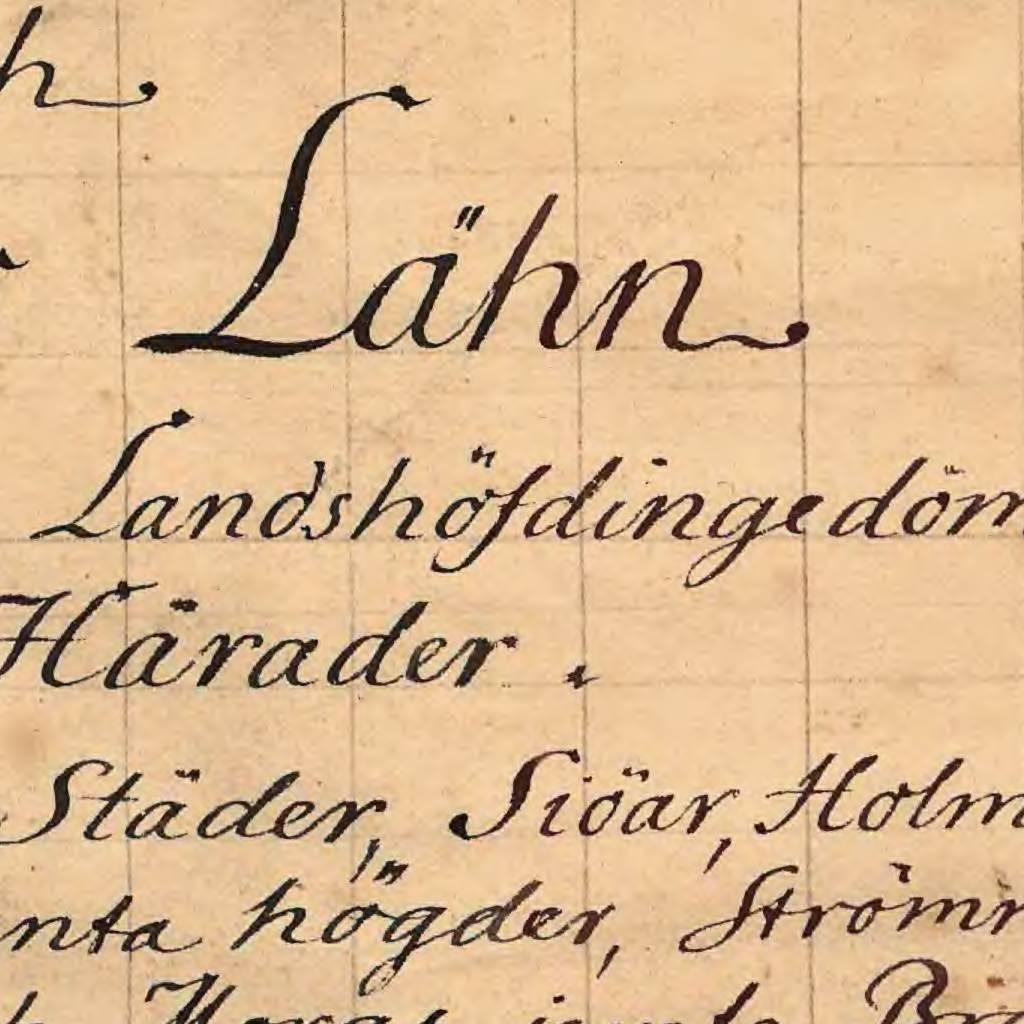 Lähn
Landshöfdingedöm
Härader.
Städer, Siöar, Holm
nta högder, Strömr